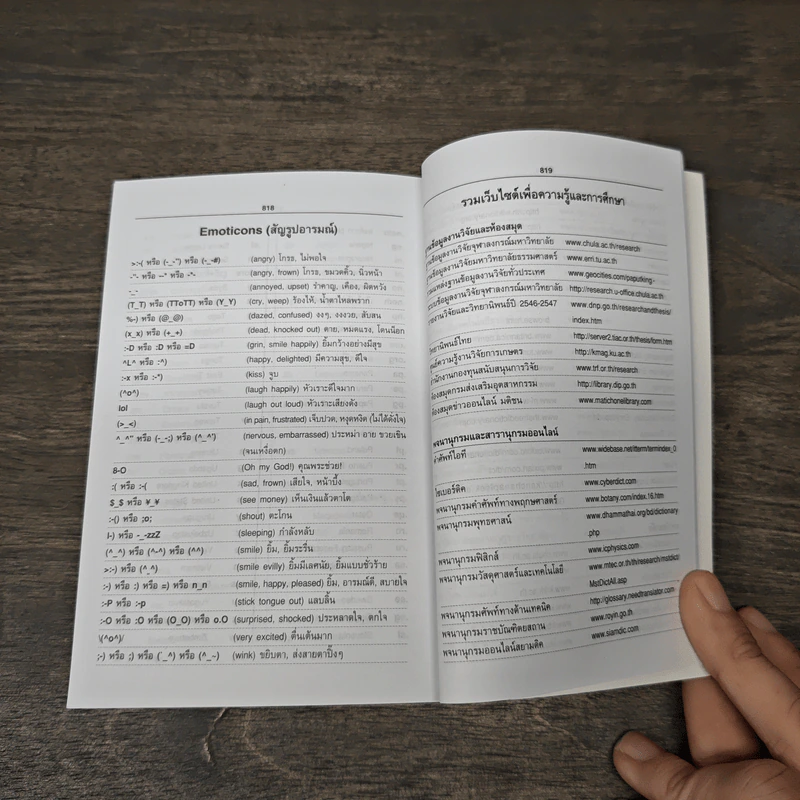 818
Emoticons (สัญรูปอารมณ์)
>:-( หรือ (-_-") หรือ (-_-#) (angry) โกรธ, ไม่พอใจ
-"- หรือ --* หรือ -*- (angry, frown) โกรธ, ขมวดคิ้ว, นิ่วหน้า
-_- (annoyed, upset) รำคาญ, เคือง, ผิดหวัง
(T_T) หรือ (TToTT) หรือ (Y_Y) (cry, weep) ร้องไห้, น้ำตาไหลพราก
%-) หรือ (@_@) (dazed, confused) งงๆ, งงงวย, สับสน
(x_x) หรือ (+_+) (dead, knocked out) ตาย, หมดแรง, โดนน็อก
:-D หรือ :D หรือ =D (grin, smile happily) ยิ้มกว้างอย่างมีสุข
^L^ หรือ :^) (happy, delighted) มีความสุข, ดีใจ
:-x หรือ :-*) (kiss) จูบ
(^o^) (laugh happily) หัวเราะดีใจมาก
lol (laugh out loud) หัวเราะเสียงดัง
(>_<) (in pain, frustrated) เจ็บปวด, หงุดหงิด (ไม่ได้ดั่งใจ)
^_^" หรือ (-_-;) หรือ (^_^') (nervous, embarrassed) ประหม่า อาย ขวยเขิน
(จนเหงื่อตก)
8-O (Oh my God!) คุณพระช่วย!
:( หรือ :-( (sad, frown) เสียใจ, หน้าบึ้ง
$_$ หรือ ¥_¥ (see money) เห็นเงินแล้วตาโต
:-() หรือ ;o; (shout) ตะโกน
I-) หรือ -_-zzZ (sleeping) กำลังหลับ
(^_^) หรือ (^-^) หรือ (^^) (smile) ยิ้ม, ยิ้มระรื่น
>:-) หรือ (^_^) (smile evilly) ยิ้มมีเลศนัย, ยิ้มแบบชั่วร้าย
:-) หรือ :) หรือ =) หรือ n_n (smile, happy, pleased) ยิ้ม, อารมณ์ดี, สบายใจ
:-P หรือ :-p (stick tongue out) แลบลิ้น
:-O หรือ :O หรือ (O_O) หรือ o.O (surprised, shocked) ประหลาดใจ, ตกใจ
\(^o^)/ (very excited) ตื่นเต้นมาก
;-) หรือ ;) หรือ (´_^) หรือ (^_~) (wink) ขยิบตา, ส่งสายตาปิ๊งๆ
819
รวมเว็บไซต์เพื่อความรู้และการศึกษา
ฐานข้อมูลงานวิจัยและห้องสมุด
ข้อมูลงานวิจัยจุฬาลงกรณ์มหาวิทยาลัย www.chula.ac.th/research
ข้อมูลงานวิจัยมหาวิทยาลัยธรรมศาสตร์ www.erri.tu.ac.th
แหล่งฐานข้อมูลงานวิจัยทั่วประเทศ www.geocities.com/paputking-
ข้อมูลงานวิจัยจุฬาลงกรณ์มหาวิทยาลัย http://research.u-office.chula.ac.th
งานวิจัยและวิทยานิพนธ์ปี 2546-2547 www.dnp.go.th/researchandthesis/
index.htm
วิทยานิพนธ์ไทย http://server2.tiac.or.th/thesis/form.htm
ศูนย์ความรู้งานวิจัยการเกษตร http://kmag.ku.ac.th
สำนักงานกองทุนสนับสนุนการวิจัย www.trf.or.th/research
ห้องสมุดกรมส่งเสริมอุตสาหกรรม http://library.dip.go.th
ห้องสมุดข่าวออนไลน์ มติชน www.matichonelibrary.com
พจนานุกรมและสารานุกรมออนไลน์
คำศัพท์ไอที www.widebase.net/itterm/termindex_0
.htm
ไซเบอร์ดิค www.cyberdict.com
พจนานุกรมคำศัพท์ทางพฤกษศาสตร์ www.botany.com/index.16.htm
พจนานุกรมพุทธศาสน์ www.dhammathai.org/bd/dictionary
.php
พจนานุกรมฟิสิกส์ www.icphysics.com
พจนานุกรมวัสดุศาสตร์และเทคโนโลยี www.mtec.or.th/th/research/mstdict/
MstDictAll.asp
พจนานุกรมศัพท์ทางด้านเทคนิค http://glossary.needtranslator.com
พจนานุกรมราชบัณฑิตยสถาน www.royin.go.th
พจนานุกรมออนไลน์สยามดิค www.siamdic.com